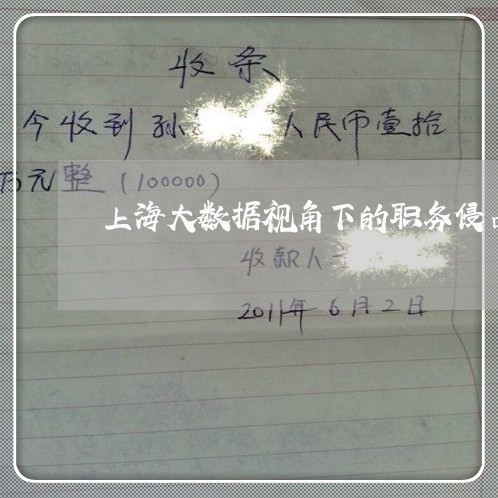 收条
今收到孙 人民币壹拾
万元整（100000）
上海大数据视角下的职务侵
收款人
2011年6月2日